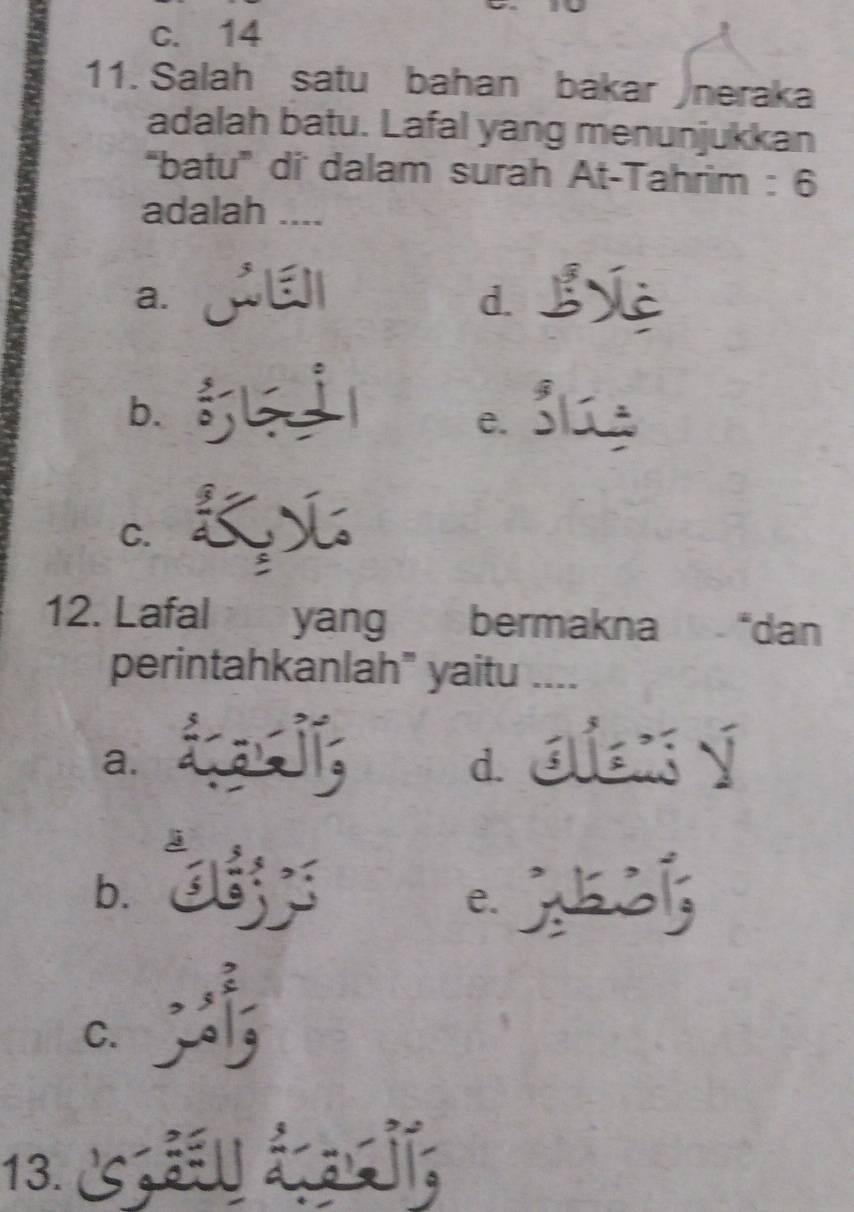 c. 14
11. Salah satu bahan bakar neraka
adalah batu. Lafal yang menunjukkan
“batu” di dalam surah At-Tahrim : 6
adalah ....
a. النَّاسُ
b. الْحِجَارَةُ
c. مَلَايِٕكَةٌ
d. غِلَاظٌ
e. شِدَادٌ
12. Lafal yang bermakna “dan
perintahkanlah” yaitu ....
a. وَالْعَاقِبَةُ
b. نَرْزُقُكَۗ
c. وَأْمُرْ
d. لَا نَسْـَٔلُكَ
e. وَاصْطَبِرْ
13. وَالْعَاقِبَةُ لِلتَّقْوٰى